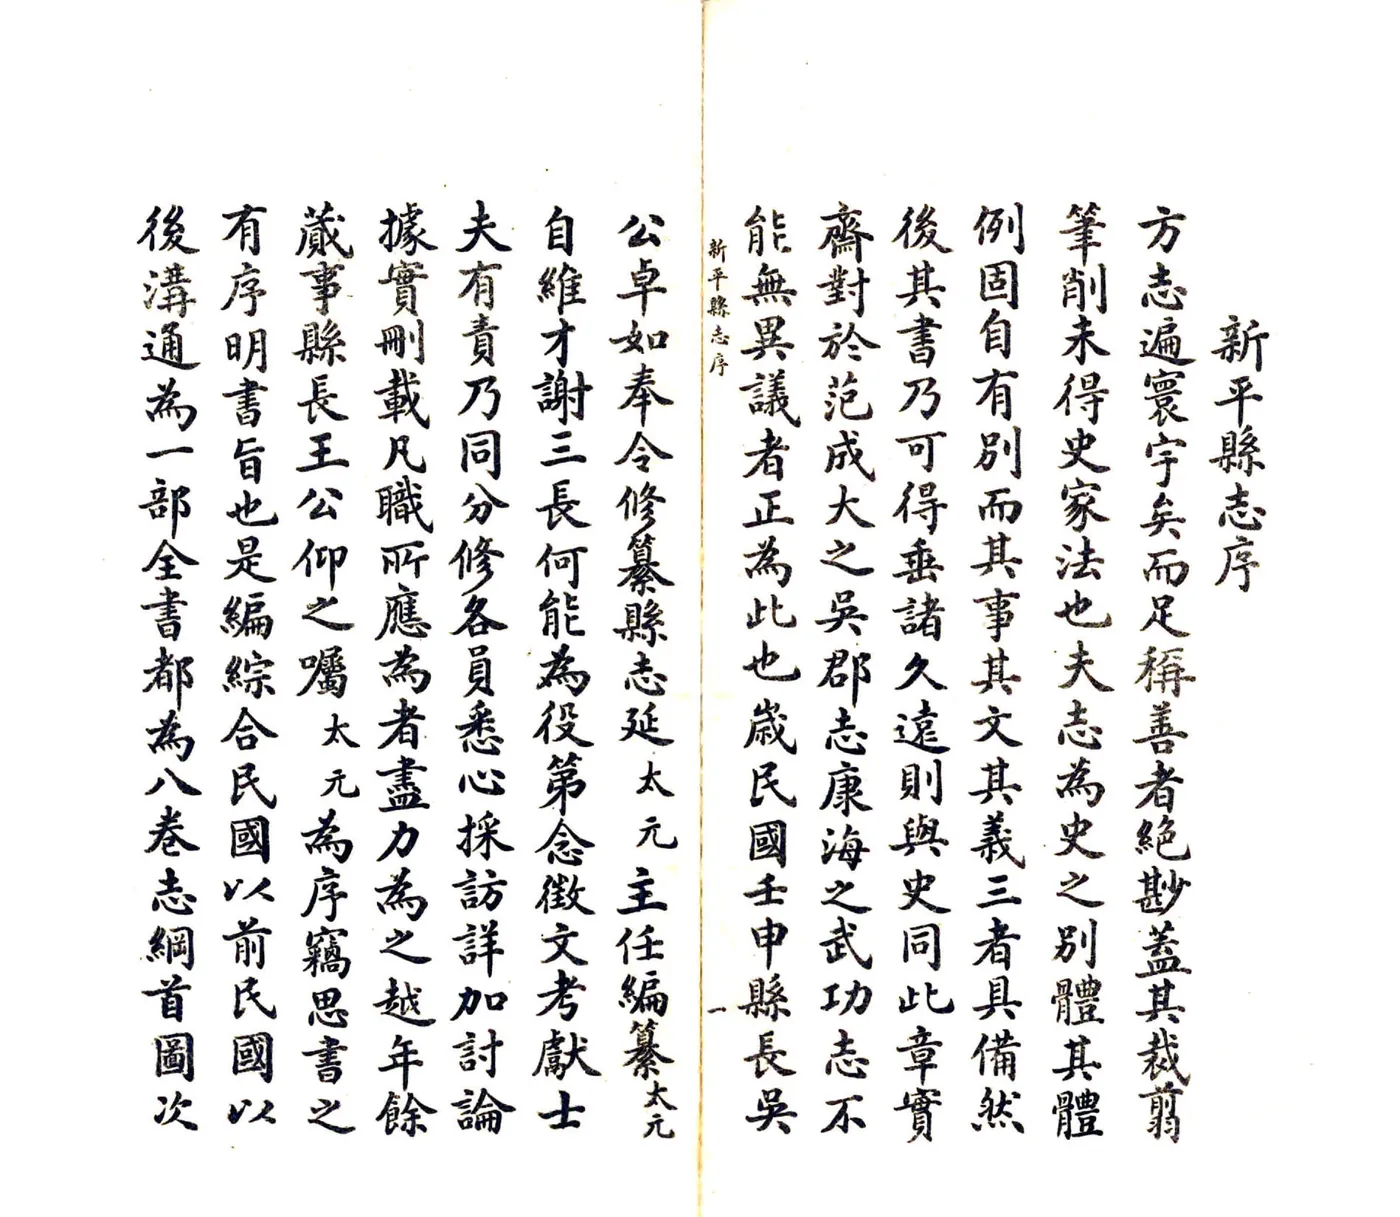 新平縣志序
方志遍寰宇矣而足稱善者絕尠蓋其裁翦
筆削未得史家法也夫志為史之別體其體
例固自有別而其事其文其義三者具備然
後其書乃可得垂諸久遠則與史同此章實
齋對於范成大之吳郡志康海之武功志不
能無異議者正為此也歲民國壬申縣長吳
新平縣志序
一
公卓如奉令修纂縣志延太元主任編纂太元
自維才謝三長何能為役第念徵文考獻士
夫有責乃同分修各員悉心採訪詳加討論
據實刪載凡職所應為者盡力為之越年餘
蕆事縣長王公仰之囑太元為序竊思書之
有序明書旨也是編綜合民國以前民國以
後溝通為一部全書都為八卷志綱首圖次